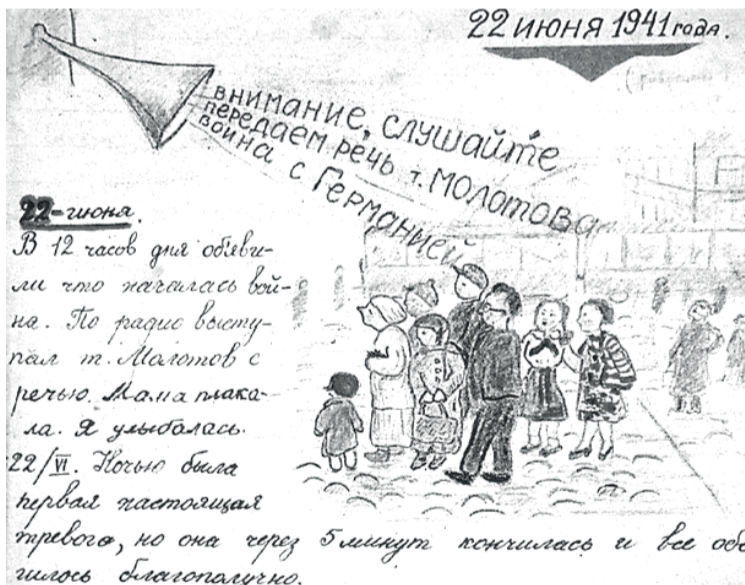 22 июня 1941 года.
внимание, слушайте
передаем речь т. Молотова
война с Германией
22-июня.
В 12 часов дня объяви-
ли что началась вой-
на. По радио высту-
пал т. Молотов с
речью. Мама плака-
ла. Я улыбалась.
22/VI. Ночью была
первая настоящая
тревога, но она через 5 минут кончилась и все обо
шлось благополучно.